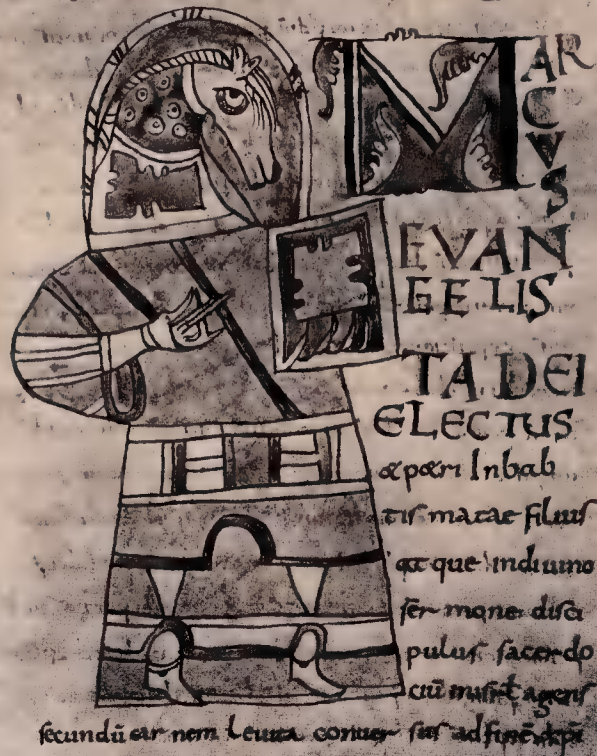 MAR
CVS
EVAN
GELIS
TA DEI
ELECTUS
& petri In bab
tis matae filius
atque in diuino
ser mone disci
pulus sacerdo
ciū in isrl agens
secundū car nem Leuita conuer sus ad finē xpi